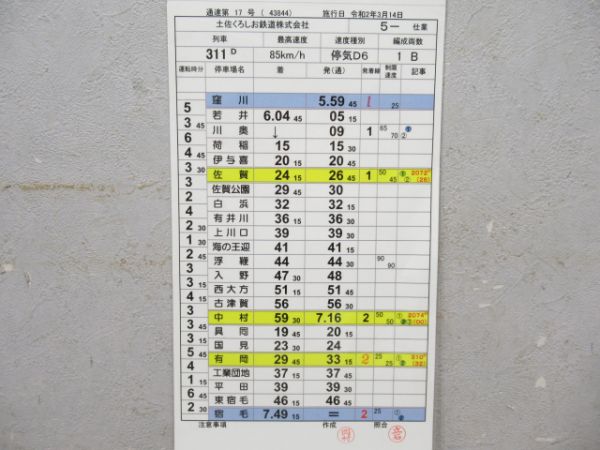 通達第 17 号 ( 43844) 施行日 令和2年3月14日
土佐くろしお鉄道株式会社 5一 仕業
列車 最高速度 速度種別 編成両数
311 D 85km/h 停気D6 1 B
運転時分 停車場名 着 発(通) 発着線 制限速度 記事
窪川 5.59 45 1 25
5
若井 6.04 45 05 15
3 45
川奥 ↓ 09 1 65 70 ① ②
6
荷稲 15 15 30
4 45
伊与喜 20 15 20 45
3 30
佐賀 24 15 26 45 1 50 45 ① ② 2072D (26)
3
佐賀公園 29 45 30
2
白浜 32 32 15
4
有井川 36 15 36 30
2 30
上川口 39 39 30
1 30
海の王迎 41 41 15
2 45
浮鞭 44 44 30 90 90
3
入野 47 30 48
3 15
西大方 51 15 51 45
4 15
古津賀 56 56 30
3
中村 59 30 7.16 2 50 50 ① 2074D (00)
3
具同 19 45 20 15
3
国見 23 30 24
5 45
有岡 29 45 33 15 2 25 25 ① ② 310D (32)
4
工業団地 37 15 37 45
1 15
平田 39 39 30
6 45
東宿毛 46 15 46 45
2 30
宿毛 7.49 15 = 2 25 ①
注意事項 作成 照合